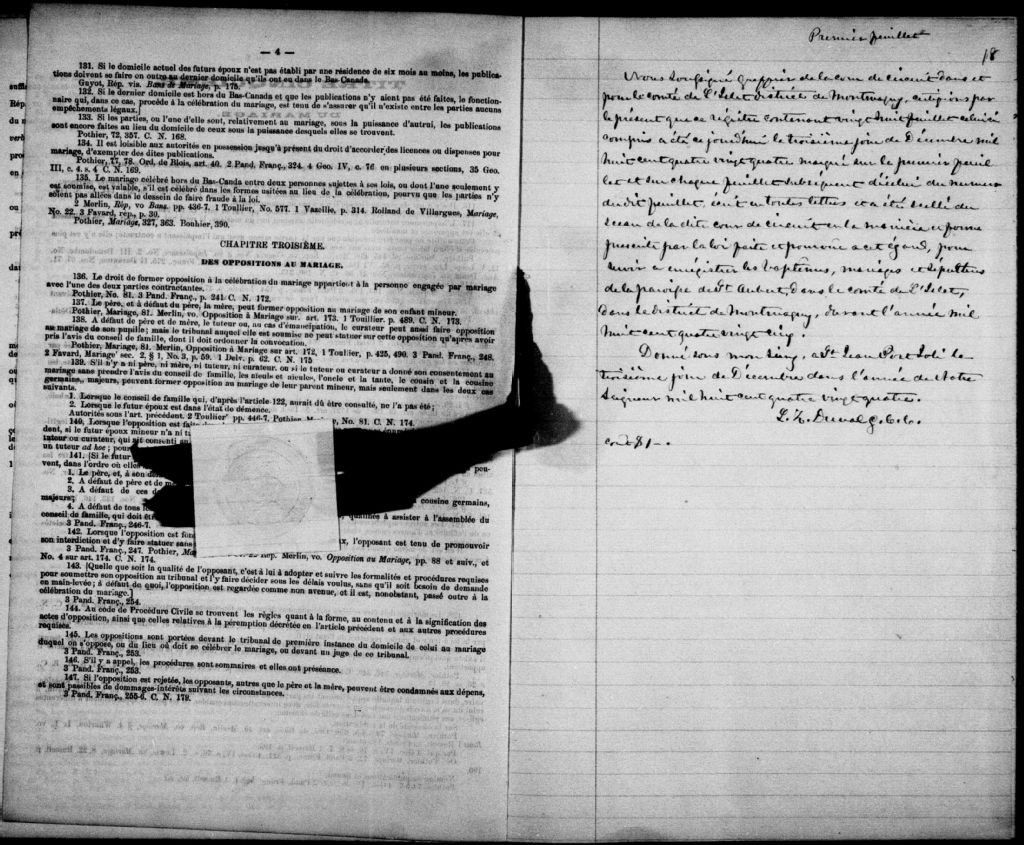 — 4 —
131. Si le domicile actuel des futurs époux n'est pas établi par une résidence de six mois au moins, les publica-
tions doivent se faire en outre au dernier domicile qu'ils ont eu dans le Bas-Canada.
Guyot, Rép. vis. Bans de Mariage, p. 175.
132. Si le dernier domicile est hors du Bas-Canada et que les publications n'y aient pas été faites, le fonction-
naire qui, dans ce cas, procède à la célébration du mariage, est tenu de s'assurer qu'il n'existe entre les parties aucuns
empêchements légaux.
133. Si les parties, ou l'une d'elle sont, relativement au mariage, sous la puissance d'autrui, les publications
sont encore faites au lieu du domicile de ceux sous la puissance desquels elles se trouvent.
Pothier, 72, 357. C. N. 168.
134. Il est loisible aux autorités en possession jusqu'à présent du droit d'accorder des licences ou dispenses pour
mariage, d'exempter des dites publications.
Pothier, 77, 78. Ord. de Blois, art. 40. 2 Pand. Franç., 324. 4 Geo. IV, c. 76 en plusieurs sections, 35 Geo.
III, c. 4. s. 4 C. N. 169.
135. Le mariage célébré hors du Bas-Canda entre deux personnes sujettes à ses lois, ou dont l'une seulement y
est soumise, est valable, s'il est célébré dans les formes usitées au lieu de la célébration, pourvu que les parties n'y
soient pas allées dans le dessein de faire fraude à la loi.
2 Merlin, Rép, vo Bans. pp. 436-7. 1 Toullier, No. 577. 1 Vazeille, p. 314. Rolland de Villargues, Mariage,
No. 22. 3 Favard, rép., p. 30.
Pothier, Mariage, 327, 363. Bouhier, 390.
CHAPITRE TROISIÈME.
DES OPPOSITIONS AU MARIAGE.
136. Le droit de former opposition à la célébration du mariage appartient à la personne engagée par mariage
avec l'une des deux parties contractantes.
Pothier, No. 81. 3 Pand. Franç., p. 241. C. N. 172.
137. Le père, et à défaut du père, la mère, peut former opposition au mariage de son enfant mineur.
Pothier, Mariage, 81. Merlin, vo. Opposition à Mariage sur. art. 173. 1 Toullier. p. 489. C. N. 173.
138. A défaut de père et de mère, le tuteur ou, au cas d'émancipation, le curateur peut aussi faire opposition
au mariage de son pupille; mais le tribunal auquel elle est soumise ne peut statuer sur cette opposition qu'après avoir
pris l'avis du conseil de famille, dont il doit ordonner la convocation.
Pothier, Mariage, 81. Merlin, Opposition à Mariage sur art. 172, 1 Toullier, p. 425, 490. 3 Pand. Franç., 248.
2 Favard, Mariage' sec. 2, § 1, No. 3, p. 59. 1 Delv. p. 62. C. N. 175
139. S'il n'y a ni père, ni mère, ni tuteur, ni curateur, ou si le tuteur ou curateur a donné son consentement au
mariage sans prendre l'avis du conseil de famille, les aïeuls et aïeules, l'oncle et la tante, le cousin et la cousine
germains, majeurs, peuvent former opposition au mariage de leur parent mineur, mais seulement dans les deux cas
suivants.
1. Lorsque le conseil de famille qui, d'après l'article 122, aurait dû être consulté, ne l'a pas été;
2. Lorsque le futur époux est dans l'état de démence.
Autorités sous l'art. précédent. 2 Toullier pp. 446-7. Pothier, No. 81. C. N. 174.
140. Lorsque l'opposition est
dent, si le futur époux mineur n'a ni
tuteur ou curateur, qui ait consenti
un tuteur ad hoc;
141. [Si le futur
vent, dans l'ordre où elles
1. Le père, et, à son
2. A défaut de père et de
3. A défaut de ces cousine germains,
majeurs;
4. A défaut de tous à assister à l'assemblée du
conseil de famille, qui doit
3 Pand. Franç., 246-7.
142. Lorsque l'opposition est l'opposant est tenu de promouvoir
son interdiction et d'y faire statuer sans
3 Pand. Franç., 247. Pothier, Rép. Merlin, vo. Opposition au Mariage, pp. 88 et suiv., et
No. 4 sur art. 174. C. N. 174.
143. [Quelle que soit la qualité de l'opposant, c'est à lui à adopter et suivre les formalités et procédures requises
pour soumettre son opposition au tribunal et l'y faire décider sous les délais voulus, sans qu'il soit besoin de demande
en main-levée; à défaut de quoi, l'opposition est regardée comme non avenue, et il est, nonobstant, passé outre à la
célébration du mariage.]
3 Pand. Franç., 254.
144. Au code de Procédure Civile se trouvent les règles quant à la forme, au contenu et à la signification des
actes d'opposition, ainsi que celles relatives à la péremption décrétée en l'article précédent et aux autres procédures
requises.
145. Les oppositions sont portées devant le tribunal de première instance du domicile de celui au mariage
duquel on s'oppose, ou du lieu où doit se célébrer le mariage, ou devant un juge de ce tribunal.
3 Pand. Franç., 253.
146. S'il y a appel, les procédures sont sommaires et elles ont préséance.
3 Pand. Franç., 253.
147. Si l'opposition est rejetée, les opposants, autres que le père et la mère, peuvent être condamnés aux dépens,
et sont passibles de dommages-intérêts suivant les circonstances.
3 Pand. Franç., 255-6. C. N. 179.
Premier feuillet
18
Nous Soussigné Greffier de la cour de circuit dans et
pour le comté de L'Islet district de Montmagny, certifions par
le présent que ce registre contenant vingt huit feuillet celui ci
compris a été ce jourd'hui le troisième jour de Décembre mil
huit cent quatre vingt quatre marqué sur le premier feuil
let et sur chaque feuillet subséquent d'icelui du numero
du dit feuillet, écrit en toutes lettres et a été scellé du
sceau de la dite cour de circuit en la manière et forme
prescrite par la loi faite et pourvue a cet égard, pour
servir a enrégistrer les baptêmes, mariages et sépultures
de la paroisse de St Aubert, dans le comté de L'Islet,
dans le district de Montmagny, durant l'année mil
huit cent quatre vingt cinq.
Donné sous mon seing, a St Jean Port Joli le
troisième jour de Décembre dans l'année de Notre
Seigneur mil huit cent quatre vingt quatre.
L. Z. Duval g. c. c.
cout $1 -.